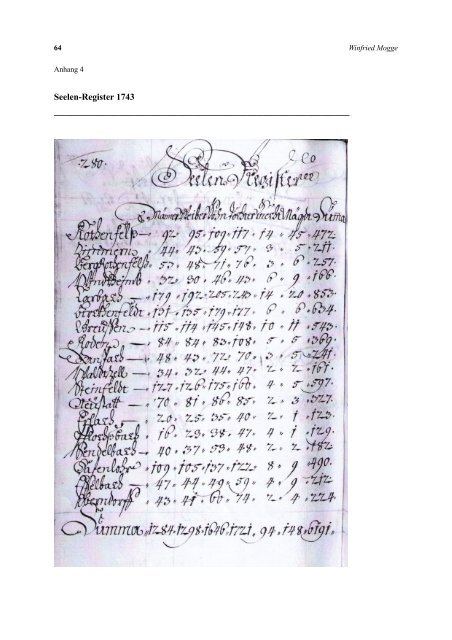 64 Winfried Mogge
Anhang 4
Seelen-Register 1743
280.
Seelen Register
Männer Weiber Söhn Töchter Knecht Mägd Suma
Rothenfels — 92 • 95 • 109 • 117 • 14 • 45 • 472
Zimmern — 44 • 43 • 59 • 57 • 3 • 5 • 211
Bergrothenfels • 53 • 48 • 71 • 76 • 3 • 6 • 257
Windheimb • 32 • 30 • 46 • 43 • 6 • 9 • 166
Karbach — 179 • 192 • 205 • 243 • 14 • 20 • 853
131 • 135 • 179 • 177 • 6 • 6 • 634
115 • 114 • 145 • 148 • 10 • 11 • 543
Roden — 84 • 84 • 83 • 108 • 5 • 5 • 369
Ansbach — 48 • 43 • 72 • 70 • 3 • 5 • 241
Waldzell — 34 • 32 • 44 • 47 • 2 • 2 • 161
Steinfeldt — 127 • 126 • 175 • 160 • 4 • 5 • 597
Neustatt — 70 • 81 • 86 • 85 • 2 • 3 • 327
Erlach — 20 • 25 • 35 • 40 • 2 • 1 • 123
16 • 23 • 38 • 47 • 4 • 1 • 129
Sendelbach — 40 • 37 • 53 • 48 • 2 • 2 • 182
Hafenlohr • 109 • 105 • 137 • 122 • 8 • 9 • 490
47 • 44 • 49 • 59 • 4 • 9 • 212
Oberndorff • 43 • 41 • 60 • 74 • 2 • 4 • 224
Summa • 1284 • 1298 • 1646 • 1721 • 94 • 148 • 6191